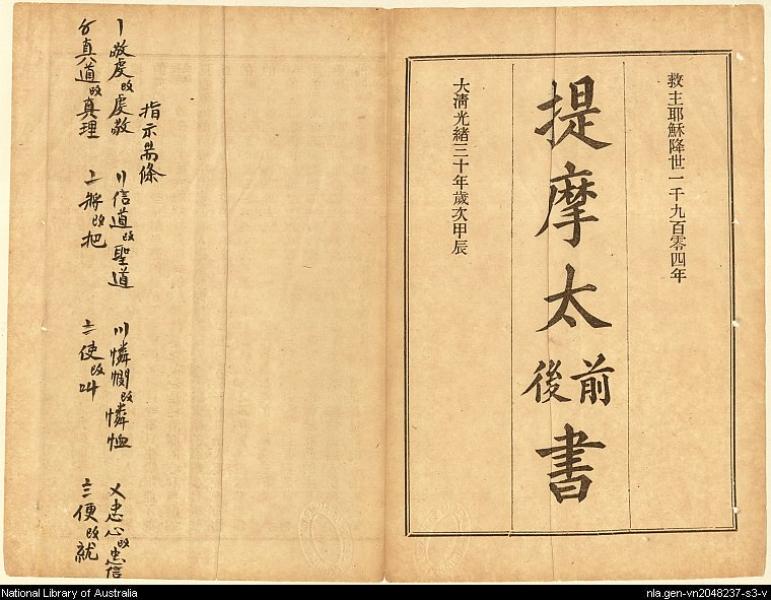 救主耶穌降世一千九百零四年
提摩太前後書
大淸光緒三十年歲次甲辰
指示某條
〡敬虔改虔敬
〢信道改聖道
〣憐憫改憐恤
〤忠心改忠信
〥真道改真理
〦將改把
〧使改叫
〨便改就
National Library of Australia
nla.gen-vn2048237-s3-v